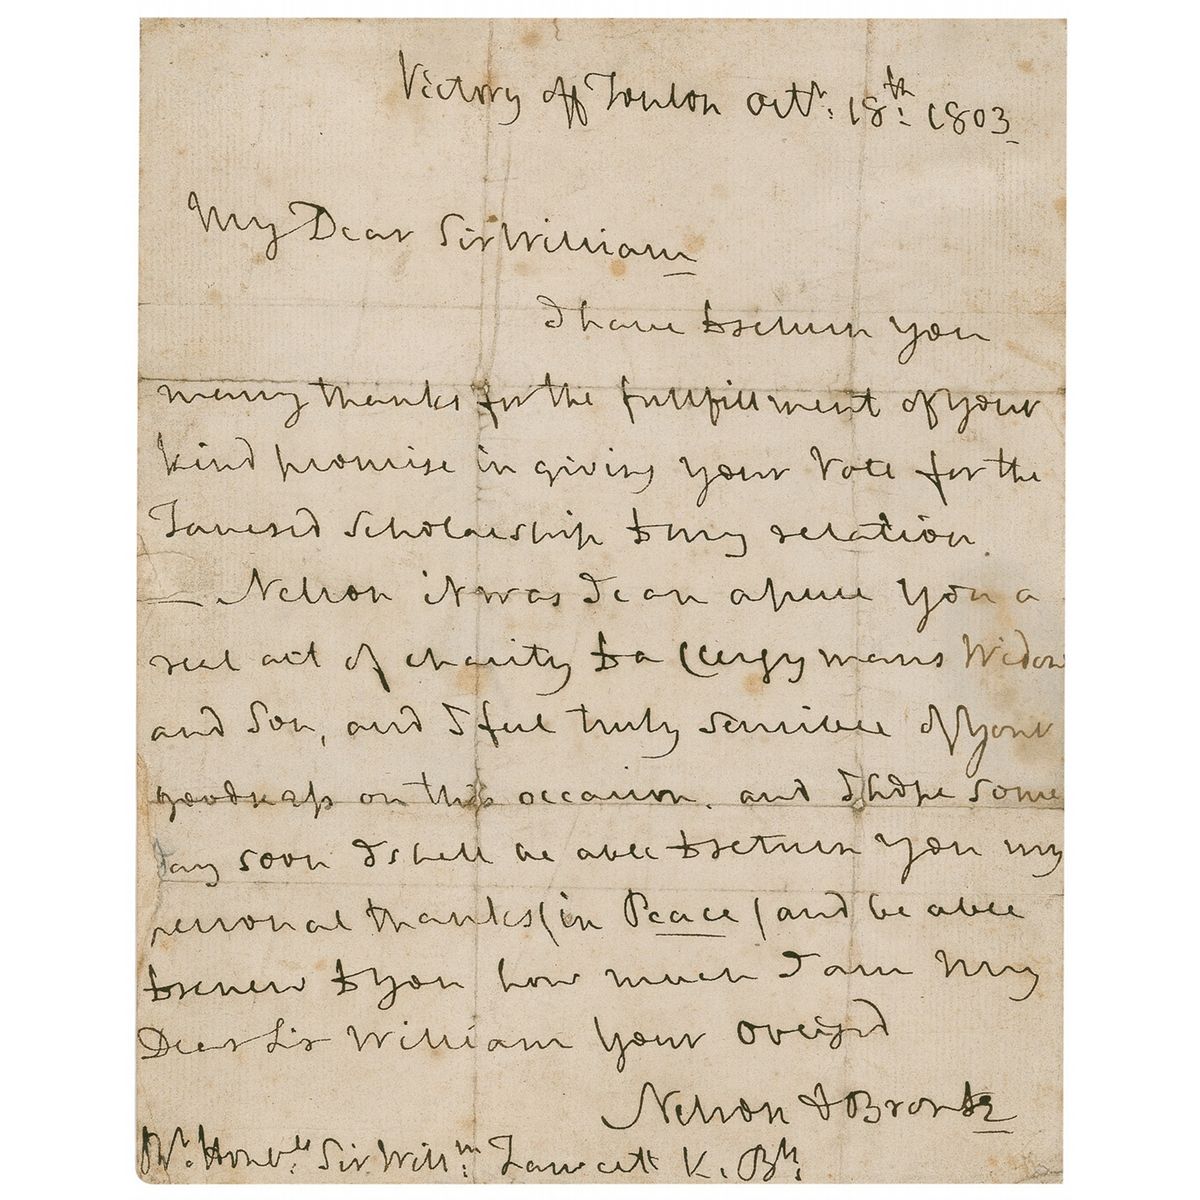 Victory off Toulon Octr: 18th: 1803
My Dear Sir William
I have to return you
many thanks for the fullfillment of your
kind promise in giving your Vote for the
Scholarship to my relation
— Nelson it was I can assure you a
real act of charity to a Clergymans Widow
and Son, and I feel truly sensible of your
goodness on this occasion. and I hope some
day soon I shall be able to return you my
personal thanks (in Peace) and be able
to renew to you how much I am My
Dear Sir William Your Oblig'd
Nelson & Bronte
Rt. Honble. Sir Willm: Fawcett K. Bth: